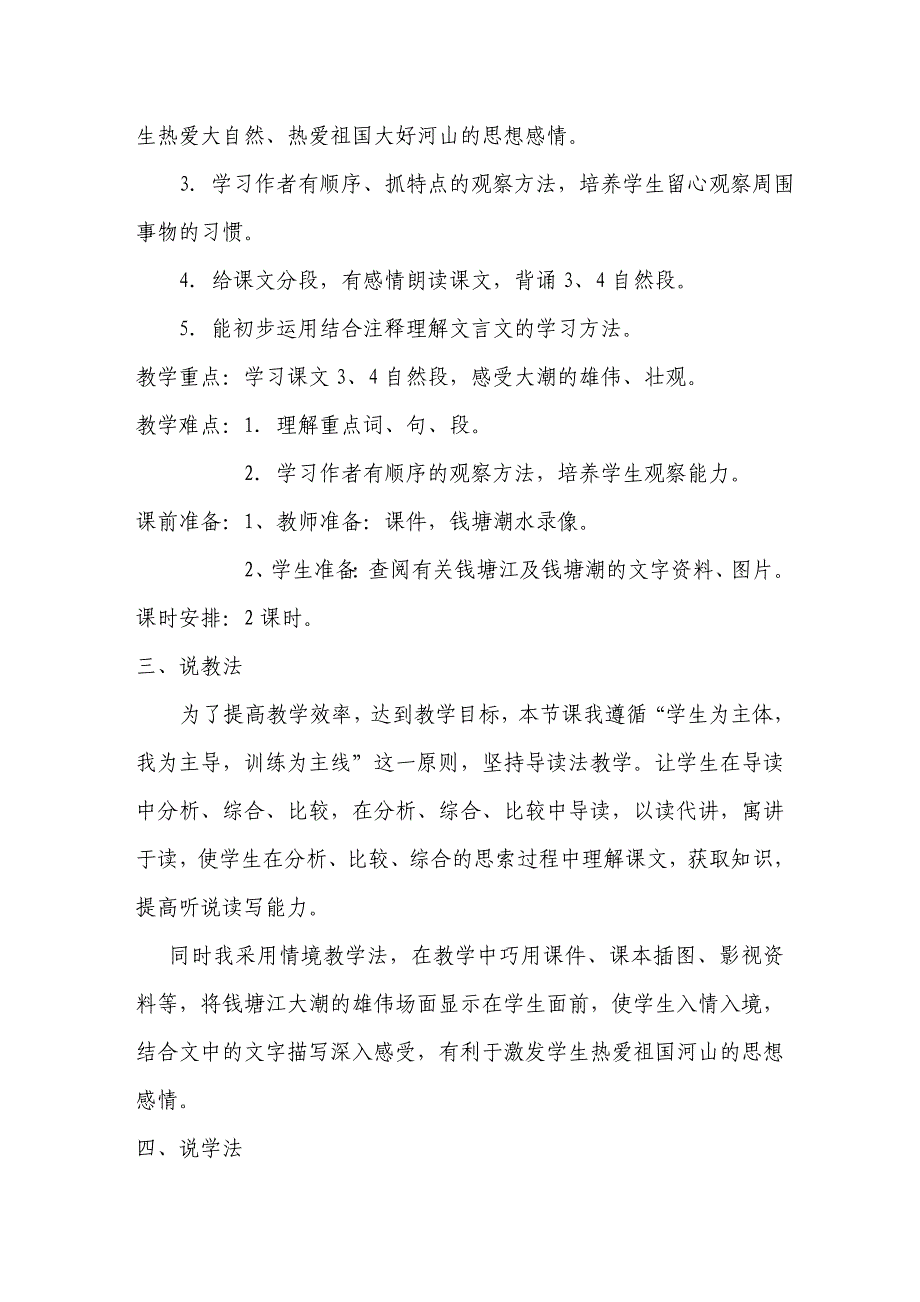 生热爱大自然、热爱祖国大好河山的思想感情。
3．学习作者有顺序、抓特点的观察方法，培养学生留心观察周围
事物的习惯。
4．给课文分段，有感情朗读课文，背诵 3、4 自然段。
5．能初步运用结合注释理解文言文的学习方法。
教学重点：学习课文 3、4 自然段，感受大潮的雄伟、壮观。
教学难点：1．理解重点词、句、段。
2．学习作者有顺序的观察方法，培养学生观察能力。
课前准备：1、教师准备：课件，钱塘潮水录像。
2、学生准备：查阅有关钱塘江及钱塘潮的文字资料、图片。
课时安排：2 课时。
三、说教法
为了提高教学效率，达到教学目标，本节课我遵循“学生为主体，
我为主导，训练为主线”这一原则，坚持导读法教学。让学生在导读
中分析、综合、比较，在分析、综合、比较中导读，以读代讲，寓讲
于读，使学生在分析、比较、综合的思索过程中理解课文，获取知识，
提高听说读写能力。
同时我采用情境教学法，在教学中巧用课件、课本插图、影视资
料等，将钱塘江大潮的雄伟场面显示在学生面前，使学生入情入境，
结合文中的文字描写深入感受，有利于激发学生热爱祖国河山的思想
感情。
四、说学法